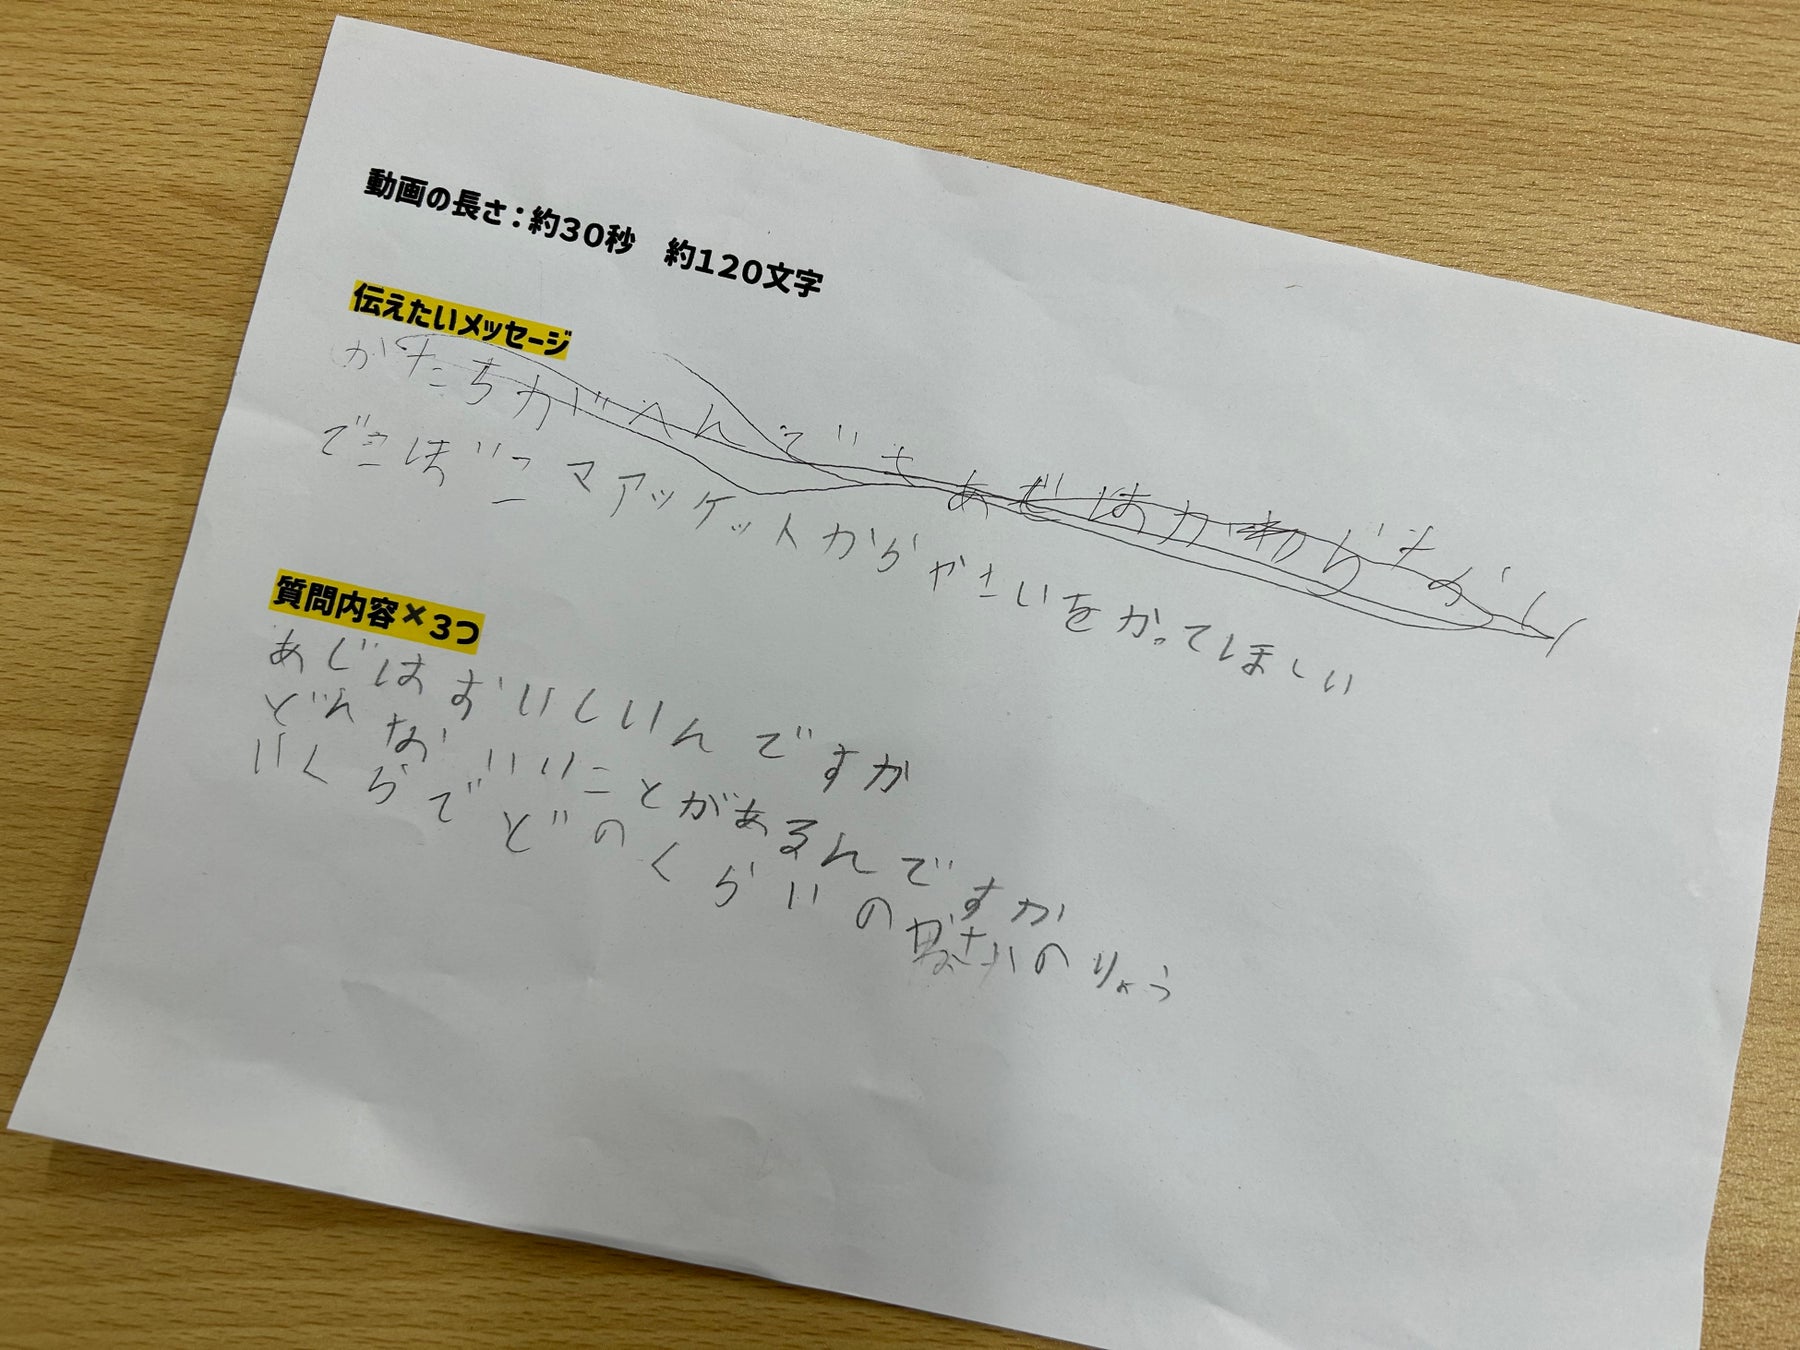 動画の長さ：約30秒　約120文字
伝えたいメッセージ
かたちがへんでもあじはかわらない
でこぼこマアッケットからやさいをかってほしい
質問内容×3つ
あじはおいしいんですか
どんないいことがあるんですか
いくらでどのくらいのやさいのりょう